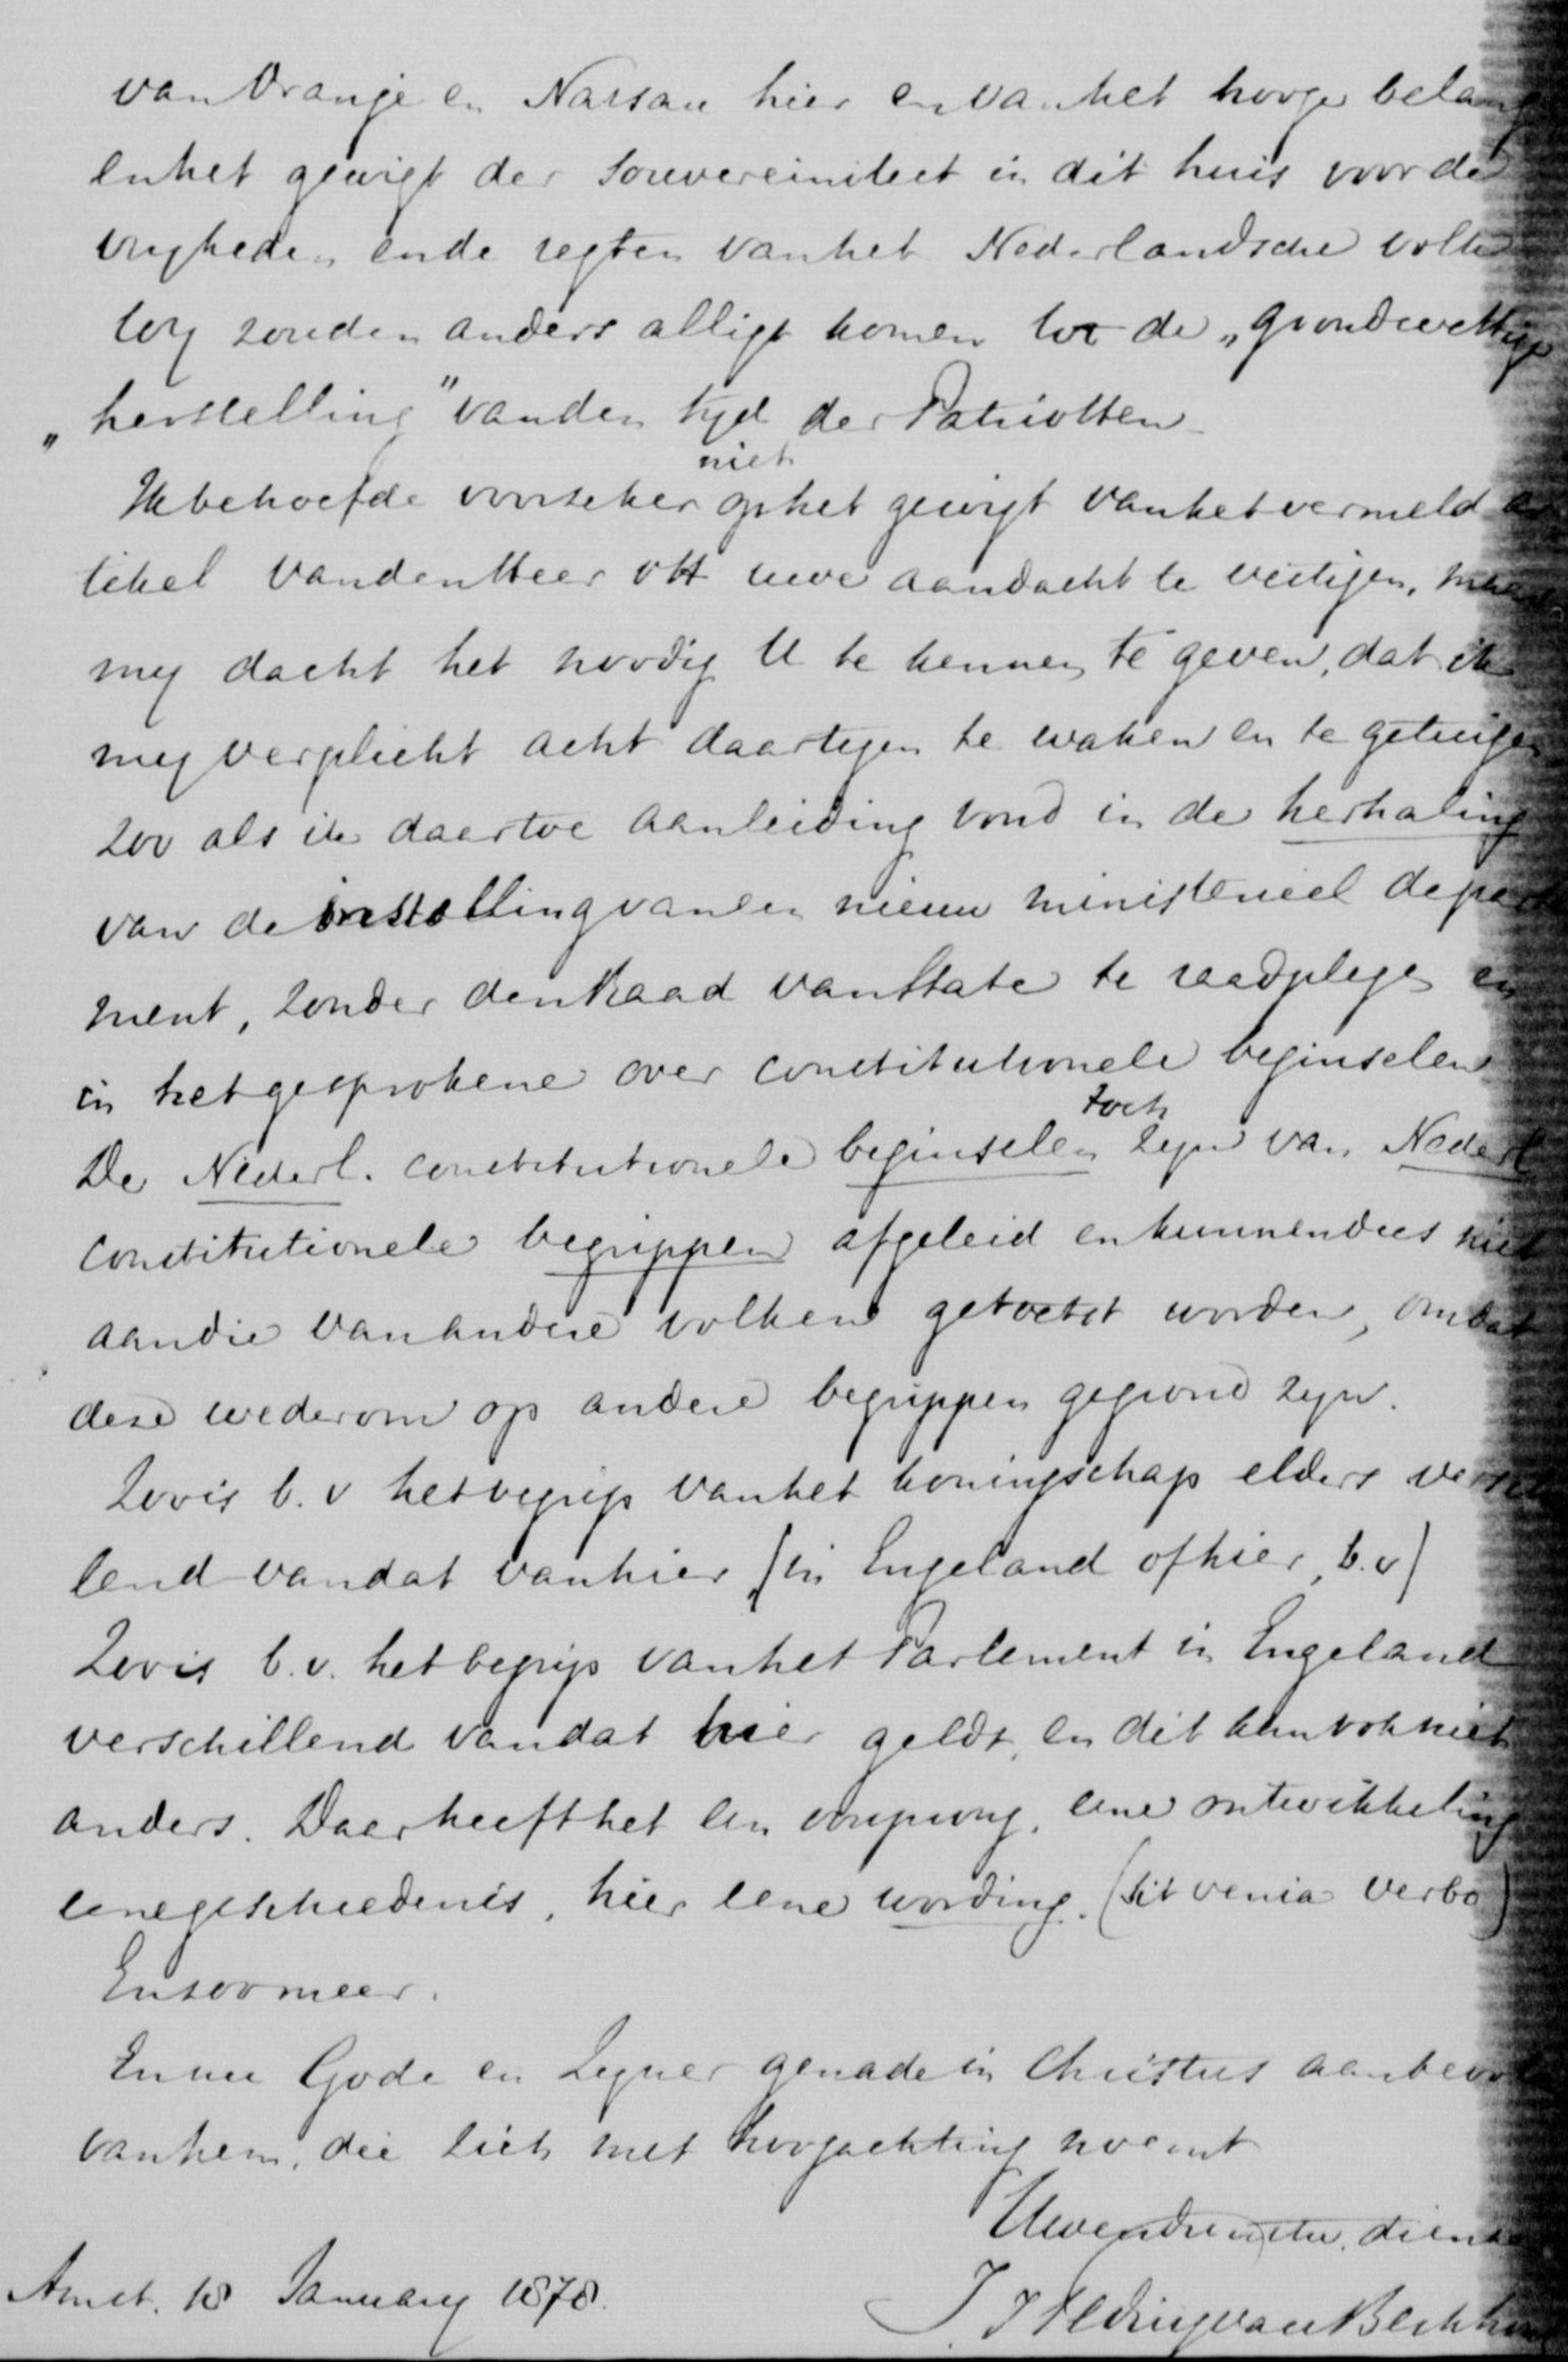 van Oranje en Nassau hier en van het hooge belang
en het gewigt der Souvereiniteit in dit huis voor de
vryheden en de regten van het Nederlandsche volk.
Wy zouden anders alligt komen tot de „grondwettige
„herstelling" van den tyd der Patriotten.
niet
Ik behoefde voorzeker op het gewigt van het vermeld ar
tikel van den Heer Ott uwe aandacht te vestigen, maar
my dacht het noodig U te kennen te geven, dat ik
my verplicht acht daartegen te waken en te getuigen
zoo als ik daartoe aanleiding vond in de herhaling
van de instelling van een nieuw ministerieel depart
ment, zonder den Raad van State te raadplegen en
in het gesprokene over constitutionele beginselen
toch
De Nederl. constitutionele beginselen zyn van Nederl
constitutionele begrippen afgeleid en kunnen dus niet
aan die van andere volken getoetst worden, omdat
deze wederom op andere begrippen gegrond zyn.
Zoo is b.v het begrip van het koningschap elders verschil
lend van dat van hier (in Engeland of hier, b.v)
Zoo is b.v. het begrip van het Parlement in Engeland
verschillend van dat hier geldt, en dit kan ook niet
anders. Daar heeft het een oorsprong, eene ontwikkeling
eene geschiedenis, hier eene wording. (sit venia verbo)
En zoo meer.
En nu Gode en Zyner genade in Christus aanbevolen
van hem, die zich met hoogachting noemt
Uwen dienstw. diena
Amst. 18 January 1878.